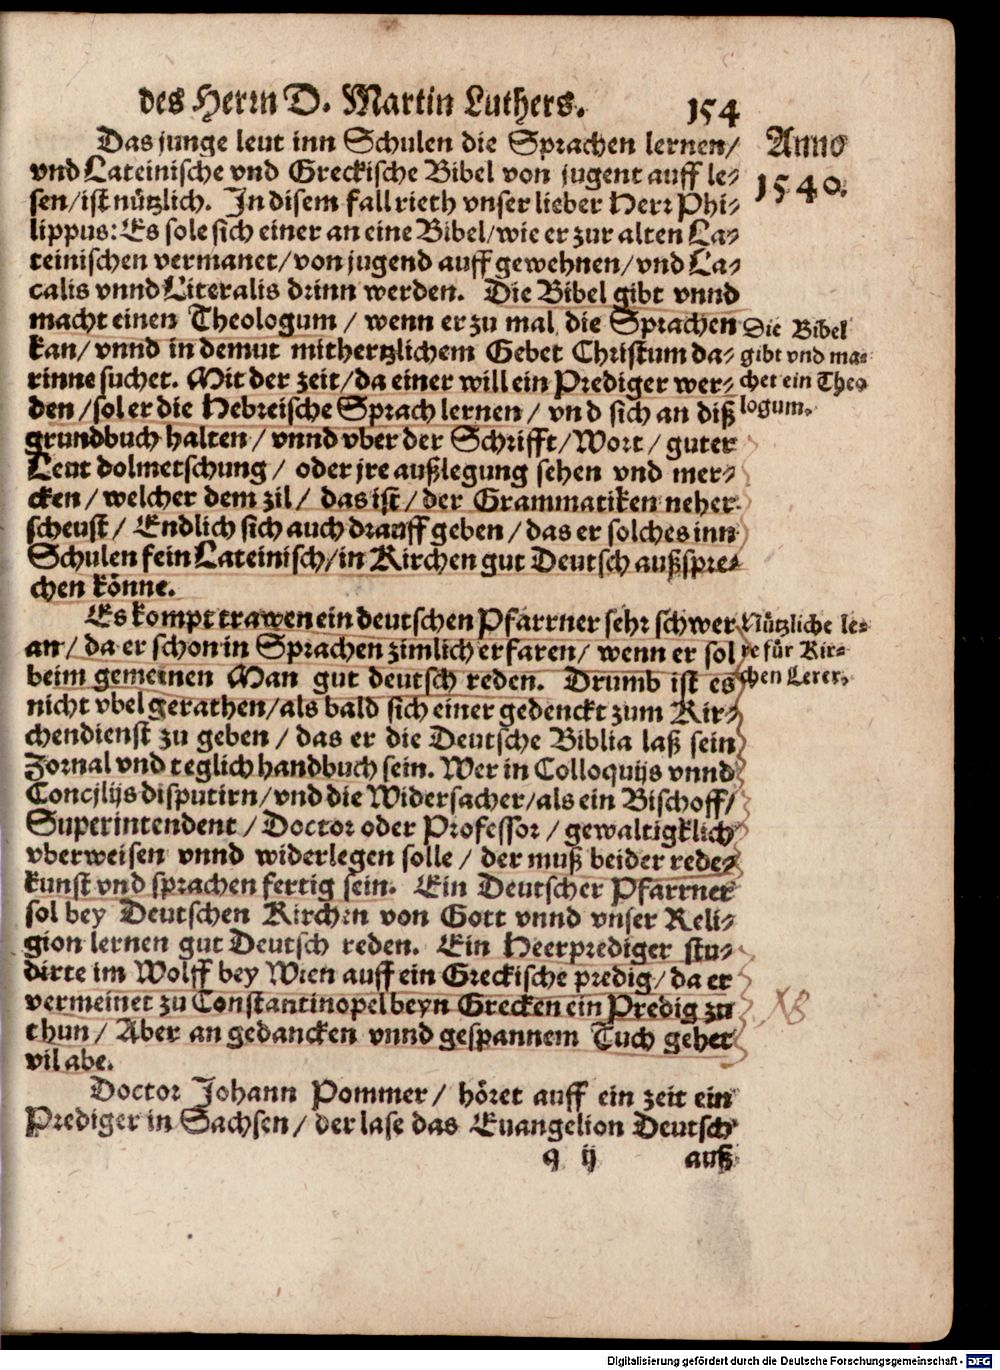 des Herrn D. Martin Luthers. 154
Das junge leut inn Schulen die Sprachen lernen/
vnd Lateinische vnd Greckische Bibel von jugent auff le-
sen/ist nützlich. In disem fall rieth vnser lieber Herr Phi-
lippus: Es sole sich einer an eine Bibel/wie er zur alten La-
teinischen vermanet/von jugend auff gewehnen/vnd La-
calis vnnd Literalis drinn werden. Die Bibel gibt vnnd
macht einen Theologum / wenn er zu mal die Sprachen
kan/ vnnd in demut mit hertzlichem Gebet Christum da-
rinne suchet. Mit der zeit/da einer will ein Prediger wer-
den/sol er die Hebreische Sprach lernen / vnd sich an diß
grundbuch halten / vnnd vber der Schrifft/Wort / guter
Leut dolmetschung / oder jre außlegung sehen vnd mer-
cken / welcher dem zil / das ist / der Grammatiken neher
scheust / Endlich sich auch drauff geben / das er solches inn
Schulen fein Lateinisch/in Kirchen gut Deutsch außspre-
chen könne.
Es kompt trawen ein deutschen Pfarrner sehr schwer
an/ da er schon in Sprachen zimlich erfaren/ wenn er sol
beim gemeinen Man gut deutsch reden. Drumb ist es
nicht vbel gerathen/als bald sich einer gedenckt zum Kir-
chendienst zu geben / das er die Deutsche Biblia laß sein
Jornal vnd teglich handbuch sein. Wer in Colloquijs vnnd
Concjlijs disputirn/vnd die Widersacher/als ein Bischoff/
Superintendent / Doctor oder Professor / gewaltigklich
vberweisen vnnd widerlegen solle / der muß beider rede-
kunst vnd sprachen fertig sein. Ein Deutscher Pfarrner
sol bey Deutschen Kirchen von Gott vnnd vnser Reli-
gion lernen gut Deutsch reden. Ein Heerprediger stu-
dirte im Wolff bey Wien auff ein Greckische predig/ da er
vermeinet zu Constantinopel beyn Grecken ein Predig zu
thun / Aber an gedancken vnnd gespannem Tuch gehet
vil abe.
Doctor Johann Pommer / höret auff ein zeit ein
Prediger in Sachsen / der lase das Euangelion Deutsch
q ij auß
Anno
1540.
Die Bibel
gibt vnd ma-
chet ein Theo
logum.
Nützliche le-
re für Kir-
chen Lerer.
NB
Digitalisierung gefördert durch die Deutsche Forschungsgemeinschaft - DFG